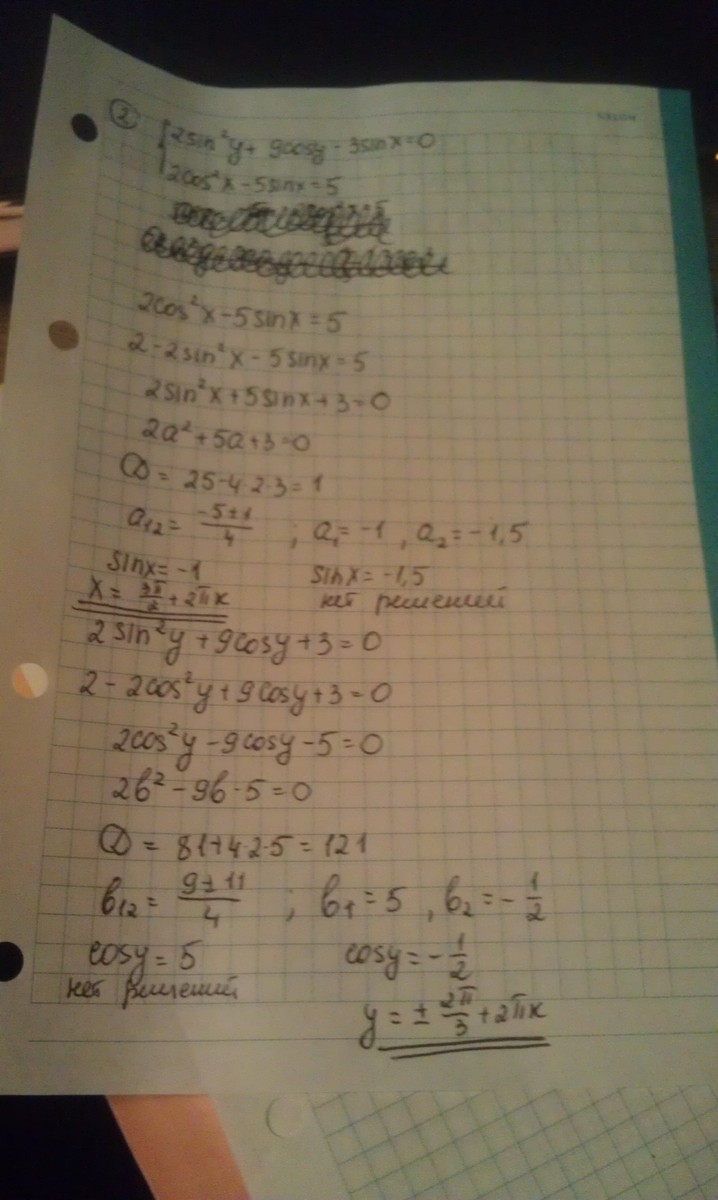 ②
2sin²y + 9cosy - 3sinx = 0
2cos²x - 5sinx = 5
2cos²x - 5sinx = 5
2 - 2sin²x - 5sinx = 5
2sin²x + 5sinx + 3 = 0
2a² + 5a + 3 = 0
D = 25 - 4·2·3 = 1
a₁₂ = (-5±1)/4 ; a₁ = -1 , a₂ = -1,5
sinx = -1 sinx = -1,5
x = 3π/2 + 2πк нет решений
2sin²y + 9cosy + 3 = 0
2 - 2cos²y + 9cosy + 3 = 0
2cos²y - 9cosy - 5 = 0
2b² - 9b - 5 = 0
D = 81 + 4·2·5 = 121
b₁₂ = (9±11)/4 ; b₁ = 5 , b₂ = -1/2
cosy = 5 cosy = -1/2
нет решений
y = ± 2π/3 + 2πк